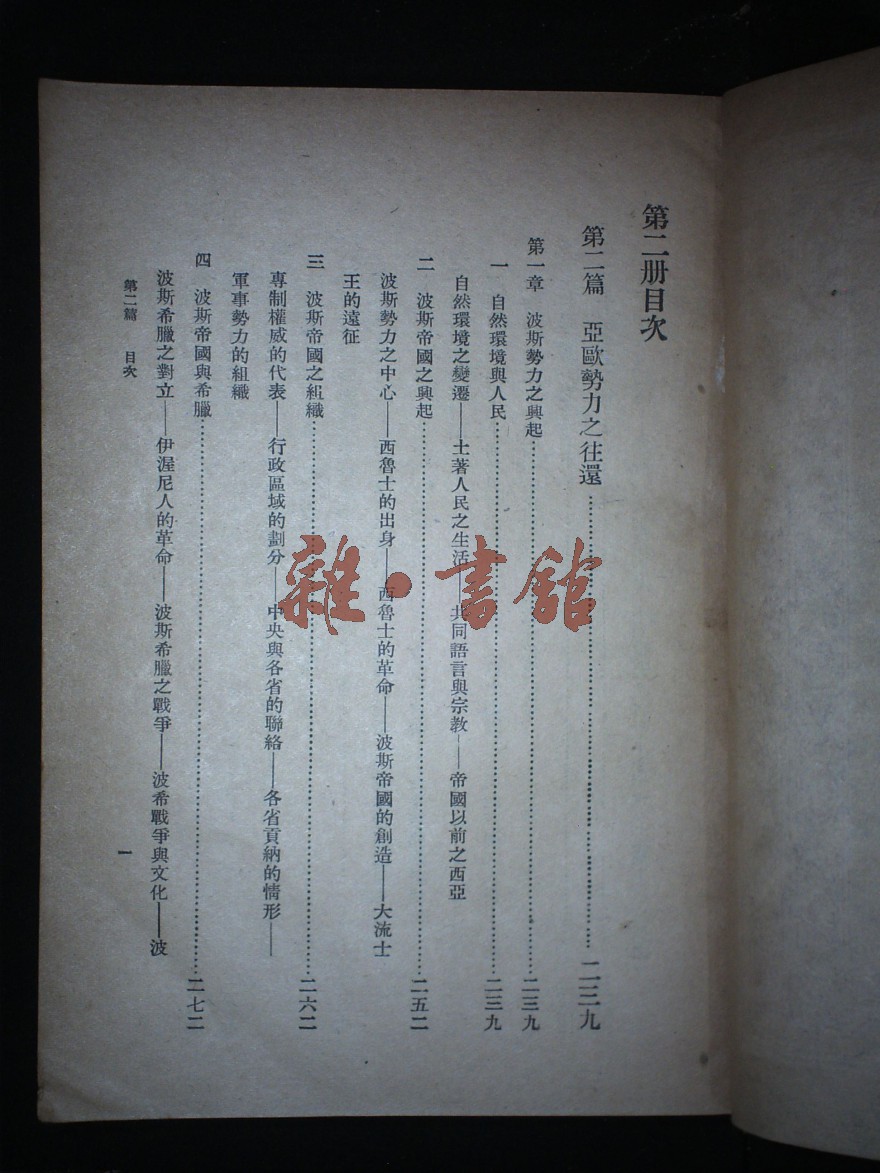 第二册目次
第二篇 亞歐勢力之往還……二三九
第一章 波斯勢力之興起……二三九
一 自然環境與人民……二三九
自然環境之變遷——土著人民之生活——共同語言與宗教——帝國以前之西亞
二 波斯帝國之興起……二五二
波斯勢力之中心——西魯士的出身——西魯士的革命——波斯帝國的創造——大流士
王的遠征
三 波斯帝國之組織……二六二
專制權威的代表——行政區域的劃分——中央與各省的聯絡——各省貢納的情形——
軍事勢力的組織
四 波斯帝國與希臘……二七二
波斯希臘之對立——伊渥尼人的革命——波斯希臘之戰爭——波希戰爭與文化——波
第二篇 目次
一
雜·書館